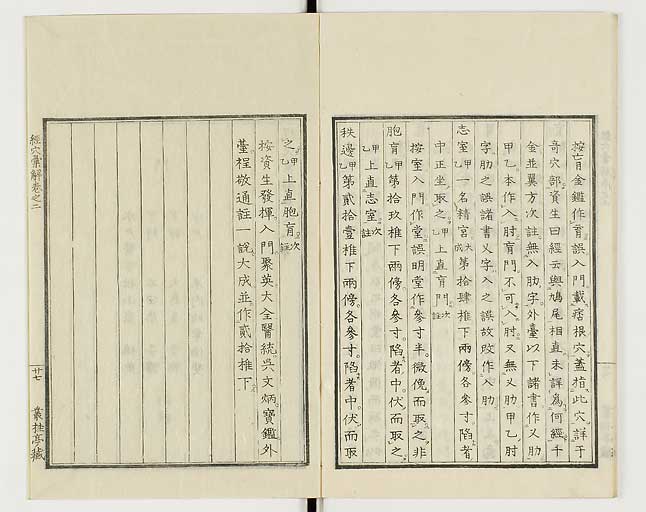 按肓金鑑作育誤入門載痞根穴蓋指此穴詳于
奇穴部資生曰經云與鳩尾相直未詳爲何經千
金並翼方次註無入肋字外臺以下諸書作乂肋
甲乙本作入肘肓門不可入肘又無乂肋甲乙肘
字肋之誤諸書乂字入之誤故改作入肋
志室甲一名精宮大成第拾肆椎下兩傍各參寸陷者
中正坐取之甲乙上直肓門次註
按室入門作堂誤明堂作參寸半微俛而取之非
胞肓甲第拾玖椎下兩傍各參寸陷者中伏而取之
甲乙上直志室次註
秩邊甲乙第貳拾壹椎下兩傍各參寸陷者中伏而取
之甲乙上直胞肓次註
按資生發揮入門聚英大全醫統吳文炳寶鑑外
臺程敬通註一說大成並作貳拾椎下
經穴彙解卷之二
廿七
叢桂亭藏